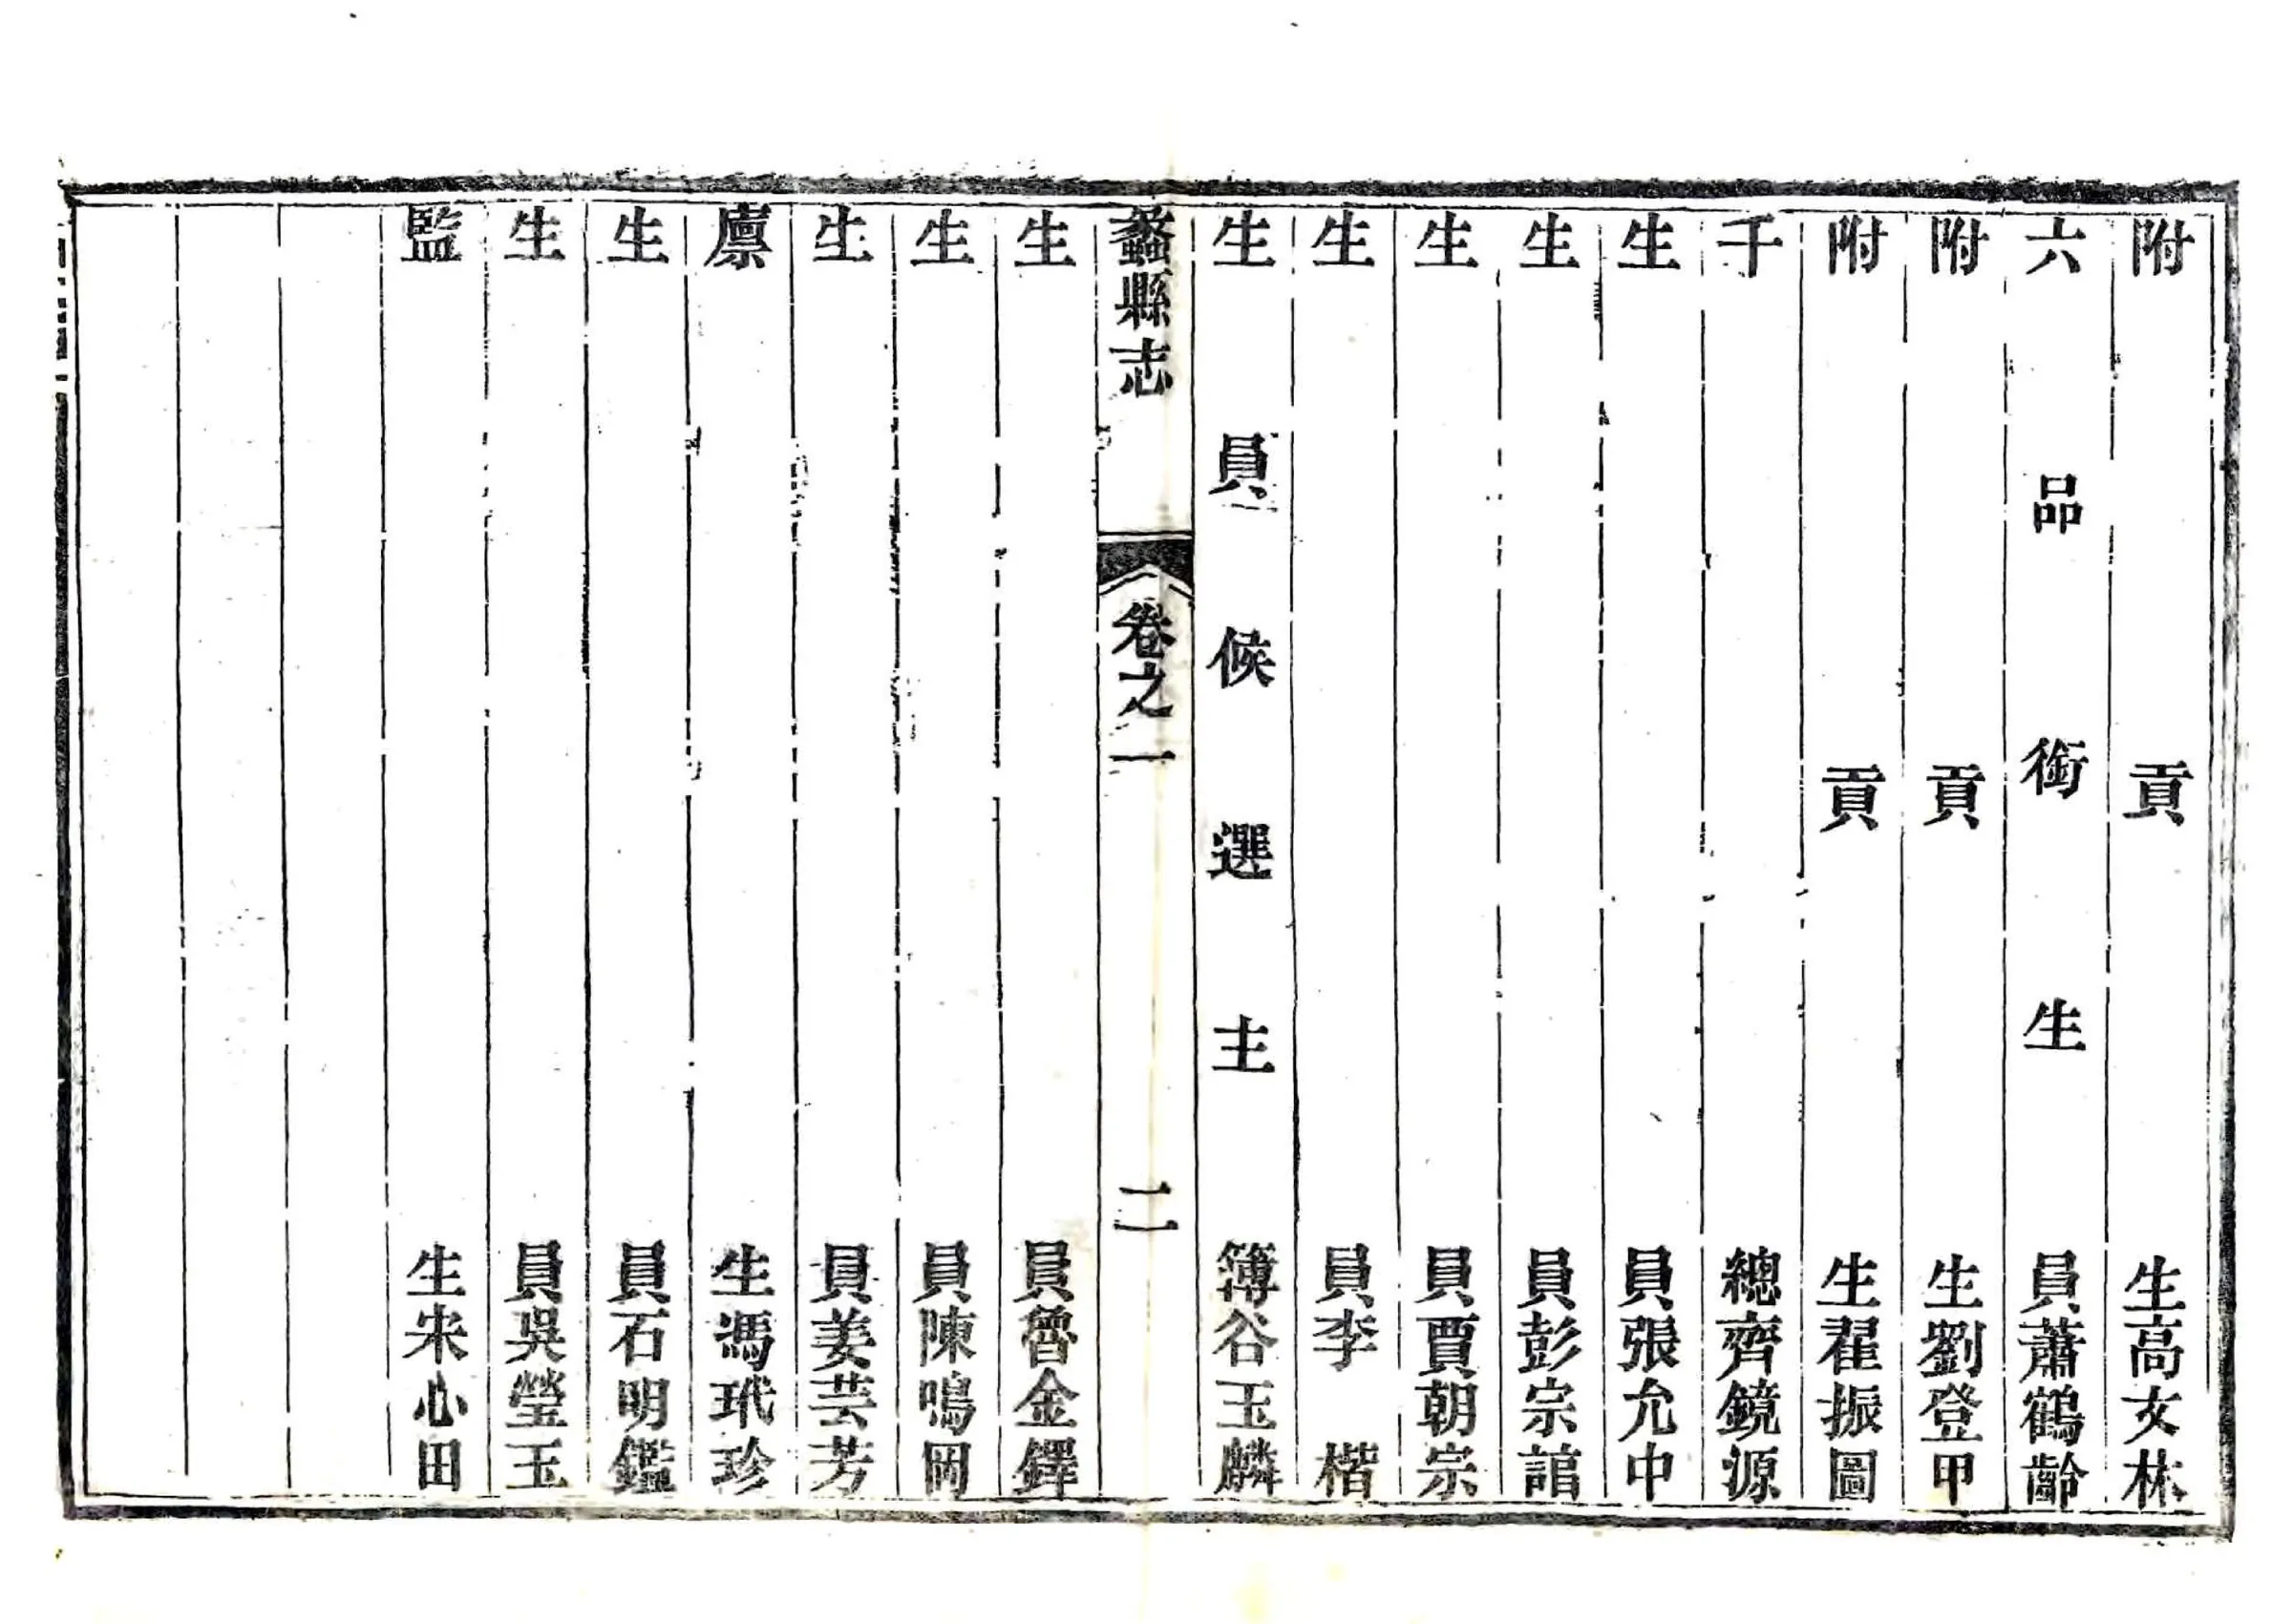 附貢生高文林
六品銜生員蕭鶴齡
附貢生劉登甲
附貢生翟振圖
千總齊鏡源
生員張允中
生員彭宗誼
生員賈朝宗
生員李楷
生員候選主簿谷玉麟
蠡縣志 卷之一 二
生員魯金鐸
生員陳鳴岡
生員姜芸芳
廩生馮玳珍
生員石明鑑
生員吳瑩玉
監生宋心田